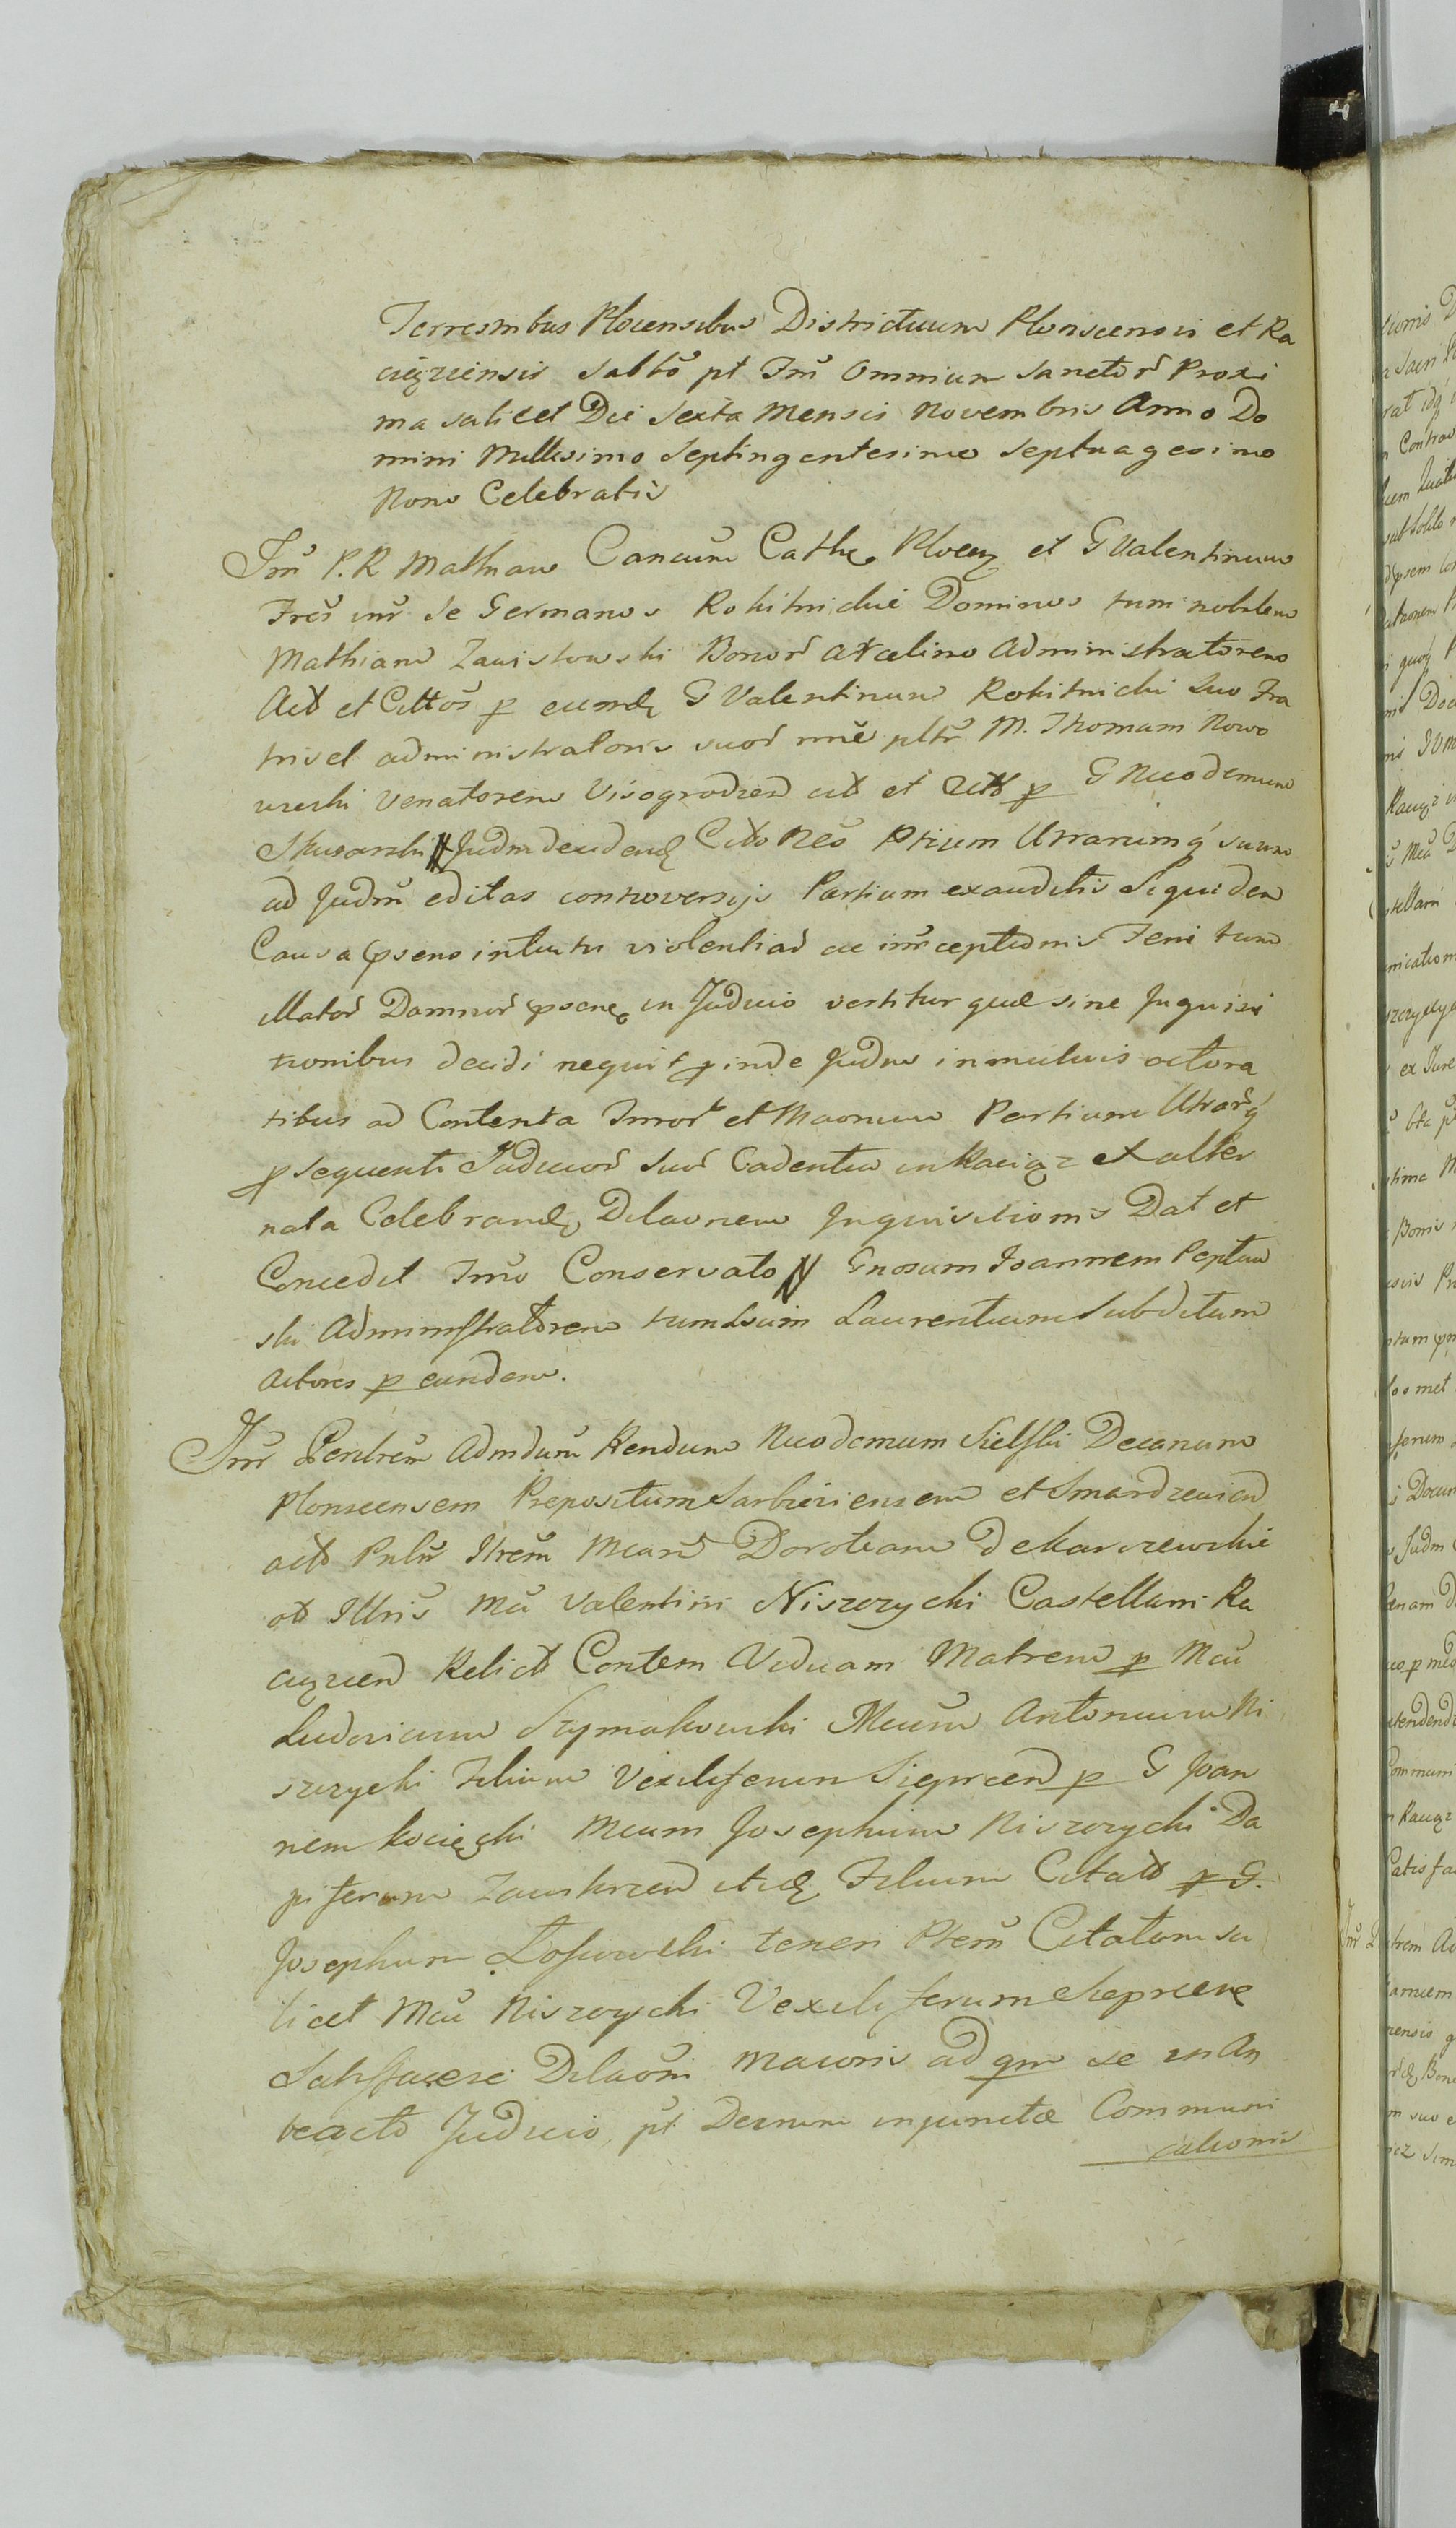 Terrestribus Plocensibus Districtuum Plonscensis et Ra
ciązeiensis Sabbő pt Fm̃ Omnium Sanctor̃ Proxi
ma scilicet Die Sexta Mensis Novembris Anno Do
mini Millesimo Septingentesimo Septuagesimo
Nono Celebratis
Int̃ P. R. Mathiam Cancum̃ Cathe Plocen et G Valentinum
Fres̃ int̃ se Germanos Rokitnickie Dominos tum nobilem
Mathiam Zawistowski Bonor̃ Administratorem
Act et Cittos̃ p eumd G Valentinum Rokitnicki Suo Fra
tris et administratoris suor̃ nn̄e pltr̃ M. Thomam Nowo
wieski Venatorem Visogrodzen cit et p G Nicodemum
Skusarski Judm decidend Citto Nes̃ Ptium Utrarumq suum
ad Judm̃ editas controversijs Partium exauditis Siquidem
Causa pseno intuitu violentiar̃ ac int̃ceptionis Feni tum
illator̃ Damnor̃ psene in Judicio vertitur quæ sine Inquisi
tionibus decidi nequit pinde Judm in mutuis actora
tibus ad Contenta Partium Utrarq̃
p sequenti Judicior̃ Suor̃ Cadentia in Raciąz et alter
nata Celebrand Dilaonem Inquisitionis Dat et
Concedit Conservato Gnosum Joannem Peplow
ski Administratorem tum Laurentium Subditum
Actores p eundem.
Int̃ Admdum̃ Rendum Nicodemum Sielski Decanum
Plonscensem Prepositum Sarbieviensem et Smardzewien
acto Pnlr̃ Itrem̃ Mcam̃ Doroteam de Karczewskie
ol Illris̃ Mci Valentini Niszczycki Castellani Ra
ciązien Relict Contem Viduam Matrem p Mcu
Ludovicum Szymakowski Mcum̃ Antonium Ni
szczycki Filium Vexiliferum Sieprcen p G Joan
nem Kocięcki Mcum Josephum Niszczycki Da
piferum Zawkrzen itid Filium Citato p G.
Josephum Łosiowski teneri Ptem̃ Citatam sci
licet Mcu Niszczycki Vexiliferum Sieprcene
Satisfacere Dilaoni maioris ad qm se in An
teacto Judicio, pt Decrum injunctæ Communi
cationis